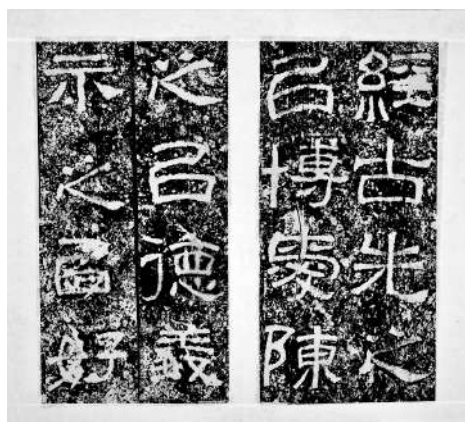 經古先之
以博愛陳
之以德義
示之以好